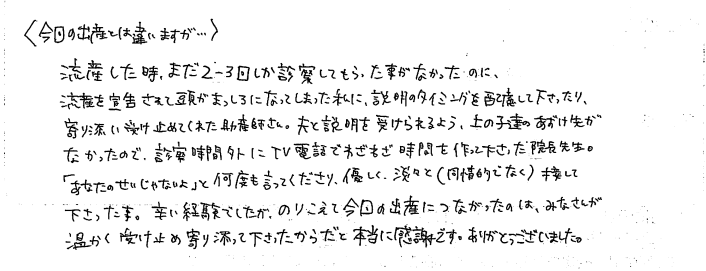 〈今回の出産とは違いますが…〉
流産した時、まだ2-3回しか診察してもらった事がなかったのに、
流産を宣告されて頭がまっしろになってしまった私に、説明のタイミングを配慮して下さったり、
寄り添い受け止めてくれた助産師さん。夫と説明を受けられるよう、上の子達のあずけ先が
なかったので、診察時間外にTV電話でわざわざ時間を作って下さった院長先生。
「あなたのせいじゃないよ」と何度も言ってくださり、優しく、淡々と(同情的でなく)接して
下さった事。辛い経験でしたが、のりこえて今回の出産につながったのは、みなさんが
温かく受け止め寄り添って下さったからだと本当に感謝です。ありがとうございました。